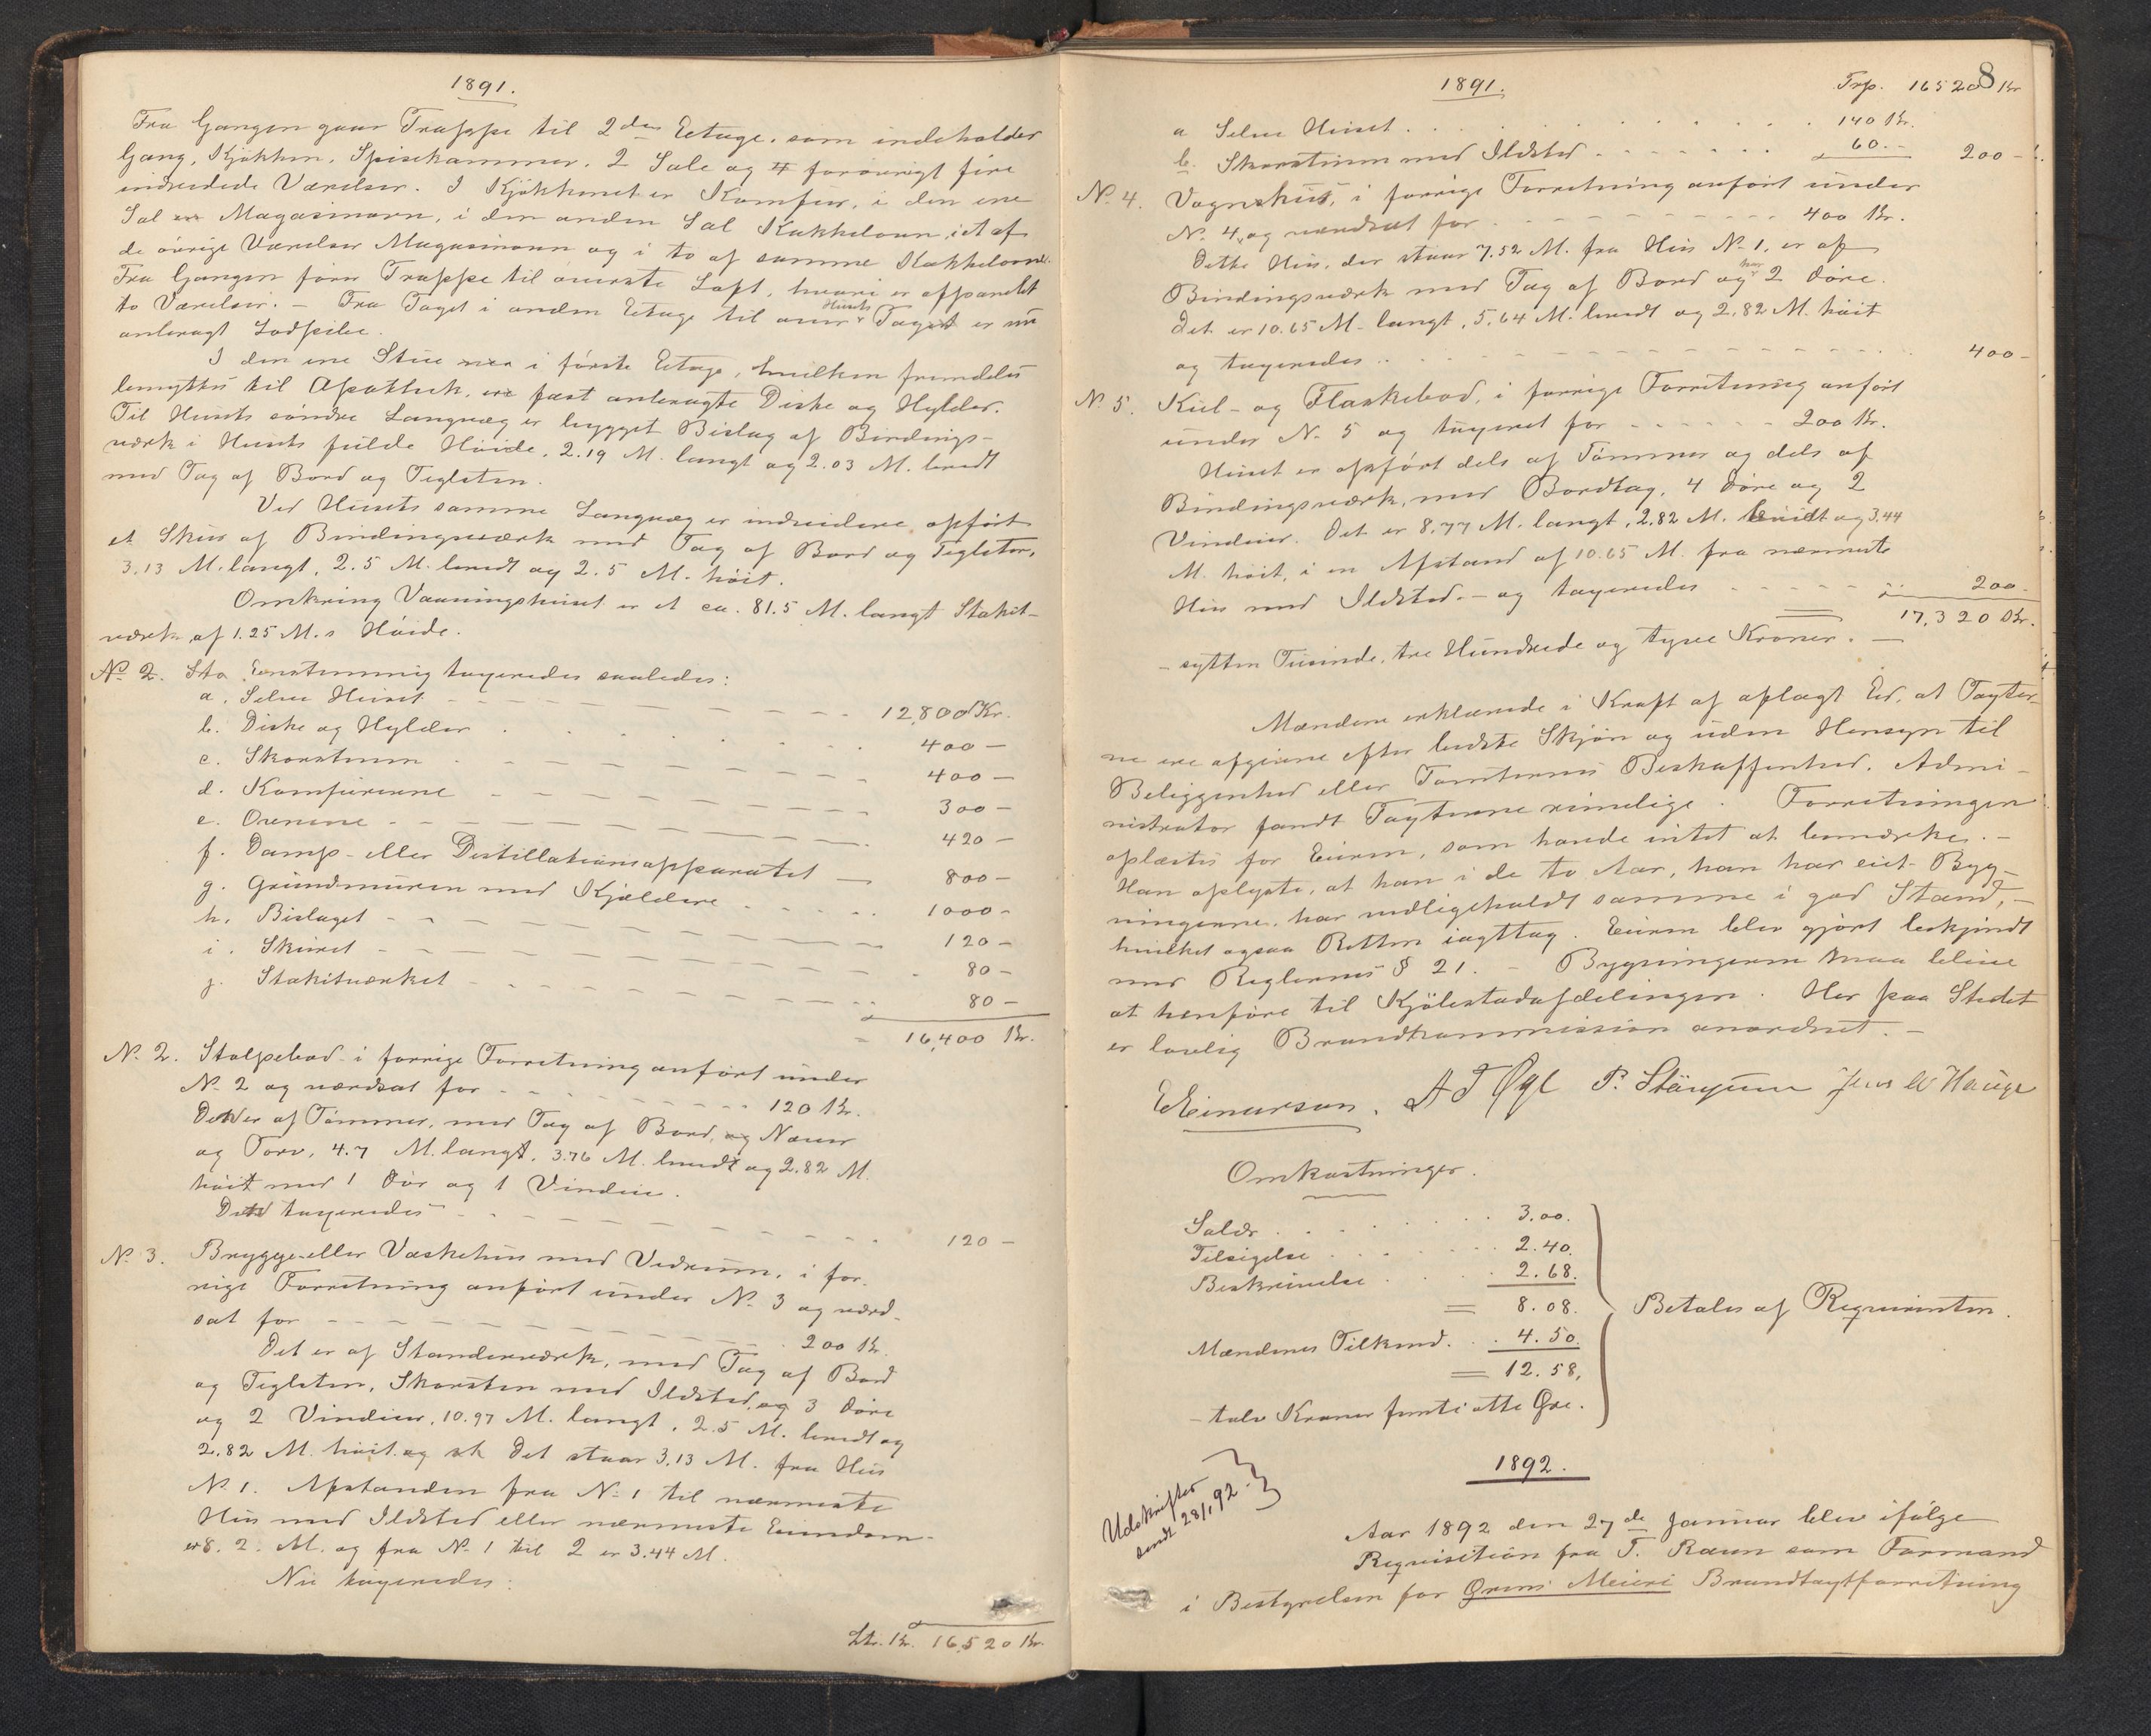 1891.
Fra Gangen gaar Trappe til 2den Eetage, som indeholder
Gang, Kjøkken, Spisekammer, 2 Sale og 4 forøvrigt fire
indredede Værelser. I Kjøkkenet er Komfur, i den ene
Sal er Magasinovn, i den anden Sal Kakkelovn, i et af
de øvrige Værelser Magasinovn og i to af samme Kakkelovne.
Fra Gangen fører Trappe til øverste Loft, hvori er afpanelet
to Værelser. – Fra Taget i anden Etage til over Husets Taget er nu
anbragt Lodpibe.
I den ene Stue i første Etage, hvilken fremdeles
benyttes til Apothek, er fast anbragte Diske og Hylder.
Til Husets søndre Langvæg er bygget Bislag af Bindings-
værk i Husets fulde Høide, 2.19 M. langt og 2.03 M. bredt
med Tag af Bord og Teglsten.
Ved Husets samme Langvæg er indvidere opført
et Skur af Bindingsværk med Tag af Bord og Teglsten,
3.13 M. langt, 2.5 M. bredt og 2.5 M. høit.
Omkring Vaaningshuset er et ca. 81.5 M. langt Stakit-
værk af 1.25 M.s Høide.
No. 2. Sta Eenstemmig taxeredes saaledes:
a. Selve Huset 12,800 Kr.
b. Diske og Hylder 400 –
c. Skorstenen 400 –
d. Komfurerne 300 –
e. Ovnene 420 –
f. Damp- eller Destillationsapparatet 800 –
g. Grundmuren med Kjældere 1000 –
h. Bislaget 120 –
i. Skuret 80 –
j. Stakitværket 80 –
16,400 Kr.
No. 2. Stolpebod i forrige Forretning anført under
No. 2 og værdsat for 120 Kr.
Det er af Tømmer, med Tag af Bord, og Næver
og Torv, 4.7 M. langt, 3.76 M. bredt og 2.82 M.
høit med 1 Dør og 1 Vindue.
Det taxeredes 120 –
No. 3. Brygge- eller Vaskehus med Vedrum, i for-
rige Forretning anført under No. 3 og værd-
sat for 200 Kr.
Det er af Standerværk, med Tag af Bord
og Teglsten, Skorsten med Ildsted, og 3 Døre
og 2 Vinduer, 10.97 M. langt, 2.5 M. bredt og
2.82 M. høit og Det staar 3.13 M. fra Hus
No. 1. Afstanden fra No. 1 til nærmeste
Hus med Ildsted eller nærmeste Eiendom
er 8.2. M. og fra No. 1 til 2 er 3.44 M.
Nu taxeredes:
Ltr. Kr. 16,520 Kr.
1891.
8
Trp. 16520 Kr
a Selve Huset 140 Kr.
b. Skorstenen med Ildsted 60. – 200 –
No. 4. Vognskus, i forrige Forretning anført under
No. 4, og værdsat for 400 Kr.
Dette Hus, der staar 7.52 M. fra Hus No. 1, er af
Bindingsværk med Tag af Bord og har 2 Døre.
Det er 10.65 M. langt, 5.64 M. bredt og 2.82 M. høit
og taxeredes 400 –
No. 5. Kul- og Flaskebod, i forrige Forretning anført
under No. 5 og taxeret for 200 Kr.
Huset er opført dels af Tømmer og dels af
Bindingsværk, med Bordtag, 4 Døre og 2
Vinduer. Det er 8.77 M. langt, 2.82 M. bredt og 3.44
M. høit, i en Afstand af 10.65 M. fra nærmeste
Hus med Ildsted. – og taxeredes 200.
17,320 Kr.
– sytten Tusinde, tre Hundrede og tyve Kroner. –
Mændene erklærede i Kraft af aflagt Eed, at Taxter-
ne ere afgivne efter bedste Skjøn og uden Hensyn til
Beliggenhed eller Tomternes Beskaffenhed. Admi-
nistrator fandt Taxterne rimelige. Forretningen
oplæstes for Eieren, som havde intet at bemærke. –
Han oplyste, at han i de to Aar, han har eiet Byg-
ningerne, har vedligeholdt samme i god Stand, –
hvilket ogsaa Retten iagttog. Eieren blev gjort bekjendt
med Reglernes § 21. – Bygningerne maa blive
at henføre til Kjøbstadafdelingen. Her paa Stedet
er lovlig Brandkommission anordnet. –
E Einarson. A T Øgl P. Støugum Jens W Hauge
Omkostninger.
Salær 3.00.
Tilsigelse 2.40.
Beskrivelse 2.68.
= 8.08.
Mændenes Tilkjend. 4.50.
= 12.58.
– tolv Kroner femti otte Øre.
Betales af Requirenten.
1892.
Udskrifter
sendt 28/1 92.
Aar 1892 den 27de Januar blev ifølge
Requisition fra T. Ravn som Formand
i Bestyrelsen for Ørens Meieri Brandtaxtforretning